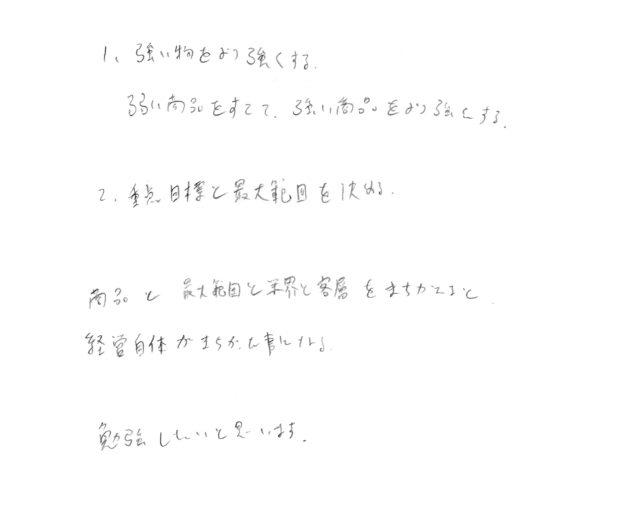 1、強い物をより強くする.
弱い商品をすてて、強い商品をより強くする.
2、重点目標と最大範囲を決める.
商品と最大範囲と業界と客層をまちがえると
経営自体がまちがった事になる.
勉強したいと思います.